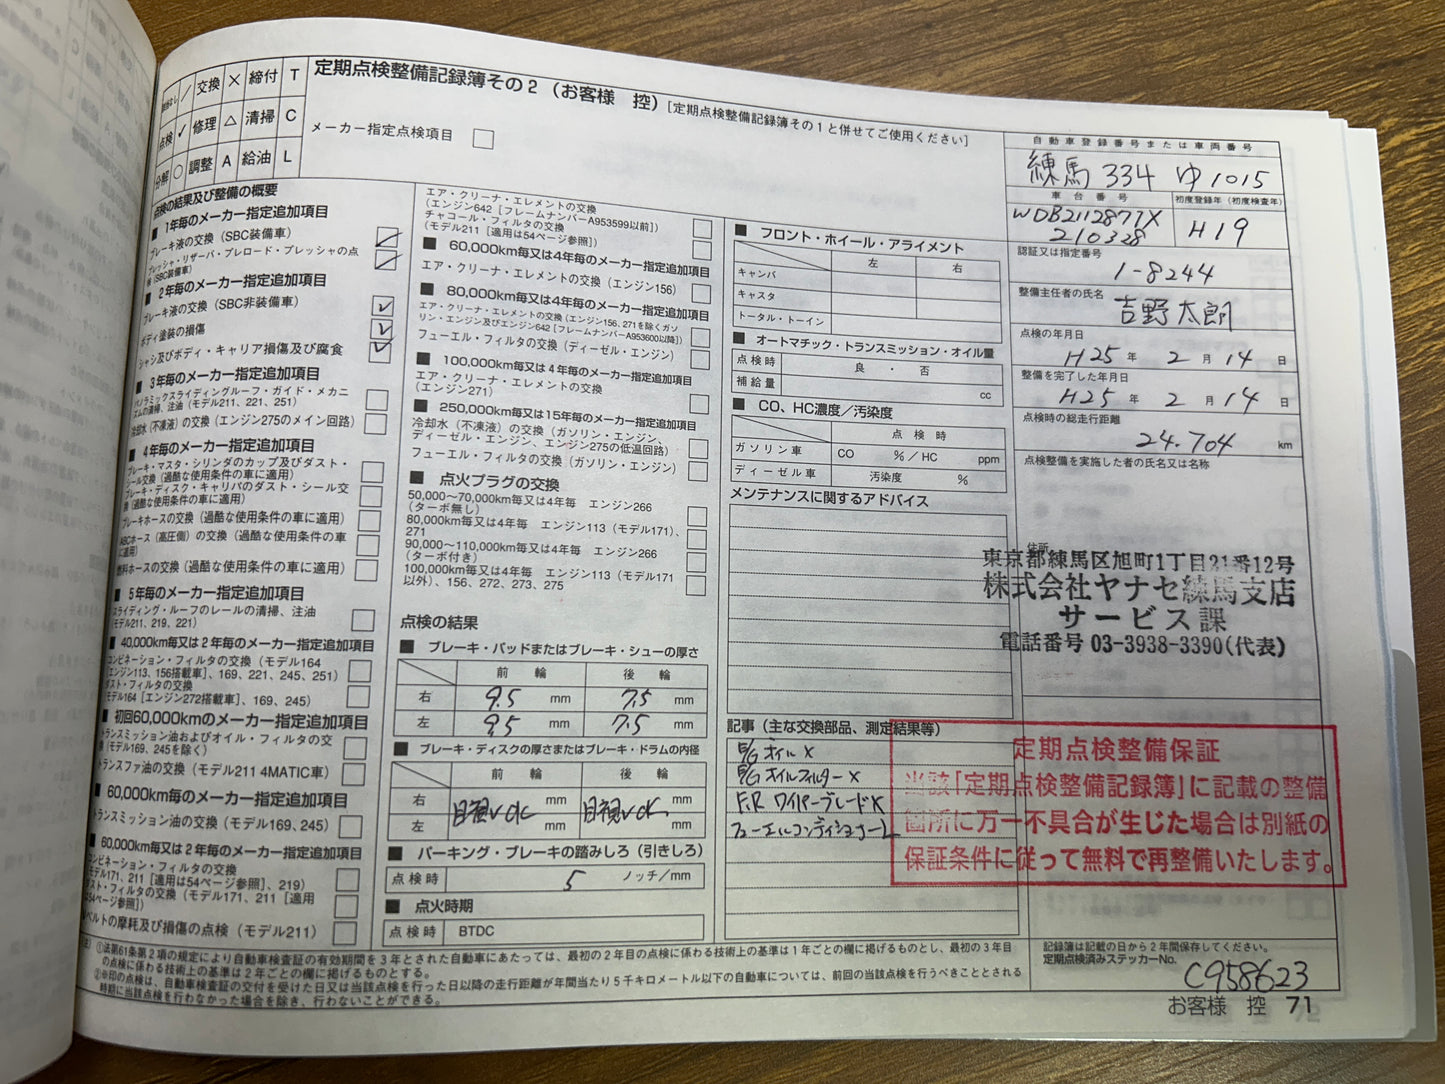 交換 × 締付 T
点検 ✓ 修理 △ 清掃 C
分解 ○ 調整 A 給油 L
定期点検整備記録簿その2(お客様 控)[定期点検整備記録簿その1と併せてご使用ください]
メーカー指定点検項目
点検の結果及び整備の概要
■ 1年毎のメーカー指定追加項目
ブレーキ液の交換(SBC装備車)
プレッシャ・リザーバ・プレロード・プレッシャの点
検(SBC装備車)
■ 2年毎のメーカー指定追加項目
ブレーキ液の交換(SBC非装備車)
ボディ塗装の損傷
シャシ及びボディ・キャリア損傷及び腐食
■ 3年毎のメーカー指定追加項目
パノラミックスライディングルーフ・ガイド・メカニ
ズムの清掃、注油(モデル211、221、251)
冷却水(不凍液)の交換(エンジン275のメイン回路)
■ 4年毎のメーカー指定追加項目
ブレーキ・マスタ・シリンダのカップ及びダスト・
シール交換(過酷な使用条件の車に適用)
ブレーキ・ディスク・キャリパのダスト・シール交
換(過酷な使用条件の車に適用)
ブレーキホースの交換(過酷な使用条件の車に適用)
ABCホース(高圧側)の交換(過酷な使用条件の車
に適用)
燃料ホースの交換(過酷な使用条件の車に適用)
■ 5年毎のメーカー指定追加項目
スライディング・ルーフのレールの清掃、注油
(モデル211、219、221)
■ 40,000km毎又は2年毎のメーカー指定追加項目
コンビネーション・フィルタの交換(モデル164
[エンジン113、156搭載車]、169、221、245、251)
ダスト・フィルタの交換
(モデル164[エンジン272搭載車]、169、245)
■ 初回60,000kmのメーカー指定追加項目
トランスミッション油およびオイル・フィルタの交
換(モデル169、245を除く)
トランスファ油の交換(モデル211 4MATIC車)
■ 60,000km毎のメーカー指定追加項目
トランスミッション油の交換(モデル169、245)
■ 60,000km毎又は2年毎のメーカー指定追加項目
コンビネーション・フィルタの交換
(モデル171、211[適用は54ページ参照]、219)
ダスト・フィルタの交換(モデル171、211[適用
は54ページ参照])
ベルトの摩耗及び損傷の点検(モデル211)
エア・クリーナ・エレメントの交換
(エンジン642[フレームナンバーA953599以前])
チャコール・フィルタの交換
(モデル211[適用は54ページ参照])
■ 60,000km毎又は4年毎のメーカー指定追加項目
エア・クリーナ・エレメントの交換(エンジン156)
■ 80,000km毎又は4年毎のメーカー指定追加項目
エア・クリーナ・エレメントの交換(エンジン156、271を除くガソ
リン・エンジン及びエンジン642[フレームナンバーA953600以降])
フューエル・フィルタの交換(ディーゼル・エンジン)
■ 100,000km毎又は4年毎のメーカー指定追加項目
エア・クリーナ・エレメントの交換
(エンジン271)
■ 250,000km毎又は15年毎のメーカー指定追加項目
冷却水(不凍液)の交換(ガソリン・エンジン、
ディーゼル・エンジン、エンジン275の低温回路)
フューエル・フィルタの交換(ガソリン・エンジン)
■ 点火プラグの交換
50,000〜70,000km毎又は4年毎 エンジン266
(ターボ無し)
80,000km毎又は4年毎 エンジン113(モデル171)、
271
90,000〜110,000km毎又は4年毎 エンジン266
(ターボ付き)
100,000km毎又は4年毎 エンジン113(モデル171
以外)、156、272、273、275
点検の結果
■ ブレーキ・パッドまたはブレーキ・シューの厚さ
前 輪 後 輪
右 9.5 mm 7.5 mm
左 9.5 mm 7.5 mm
■ ブレーキ・ディスクの厚さまたはブレーキ・ドラムの内径
前 輪 後 輪
右 mm mm
目視✓OK 目視✓OK
左 mm mm
■ パーキング・ブレーキの踏みしろ(引きしろ)
点検時 5 ノッチ/mm
■ 点火時期
点検時 BTDC
■ フロント・ホイール・アライメント
左 右
キャンバ
キャスタ
トータル・トーイン
■ オートマチック・トランスミッション・オイル量
点検時 良 ・ 否
補給量 cc
■ CO、HC濃度/汚染度
点検時
ガソリン車 CO %/HC ppm
ディーゼル車 汚染度 %
メンテナンスに関するアドバイス
記事(主な交換部品、測定結果等)
E/Gオイル ×
E/Gオイルフィルター ×
F.R ワイパーブレード×
フューエルコンディショナーL
自動車登録番号または車両番号
練馬 334 ゆ 1015
車台番号 初度登録年(初度検査年)
WDB2112877X
210328 H19
認証又は指定番号
1-8244
整備主任者の氏名
吉野太朗
点検の年月日
H25 年 2 月 14 日
整備を完了した年月日
H25 年 2 月 14 日
点検時の総走行距離
24.704 km
点検整備を実施した者の氏名又は名称
住所
東京都練馬区旭町1丁目21番12号
株式会社ヤナセ練馬支店
サービス課
電話番号 03-3938-3390(代表)
定期点検整備保証
当該「定期点検整備記録簿」に記載の整備
箇所に万一不具合が生じた場合は別紙の
保証条件に従って無料で再整備いたします。
(注)①法第61条第2項の規定により自動車検査証の有効期間を3年とされた自動車にあたっては、最初の2年目の点検に係わる技術上の基準は1年ごとの欄に掲げるものとし、最初の3年目
の点検に係わる技術上の基準は2年ごとの欄に掲げるものとする。
②※印の点検は、自動車検査証の交付を受けた日又は当該点検を行った日以降の走行距離が年間当たり5千キロメートル以下の自動車については、前回の当該点検を行うべきこととされる
時期に当該点検を行わなかった場合を除き、行わないことができる。
記録簿は記載の日から2年間保存してください。
定期点検済みステッカーNo.
C958623
お客様 控 71